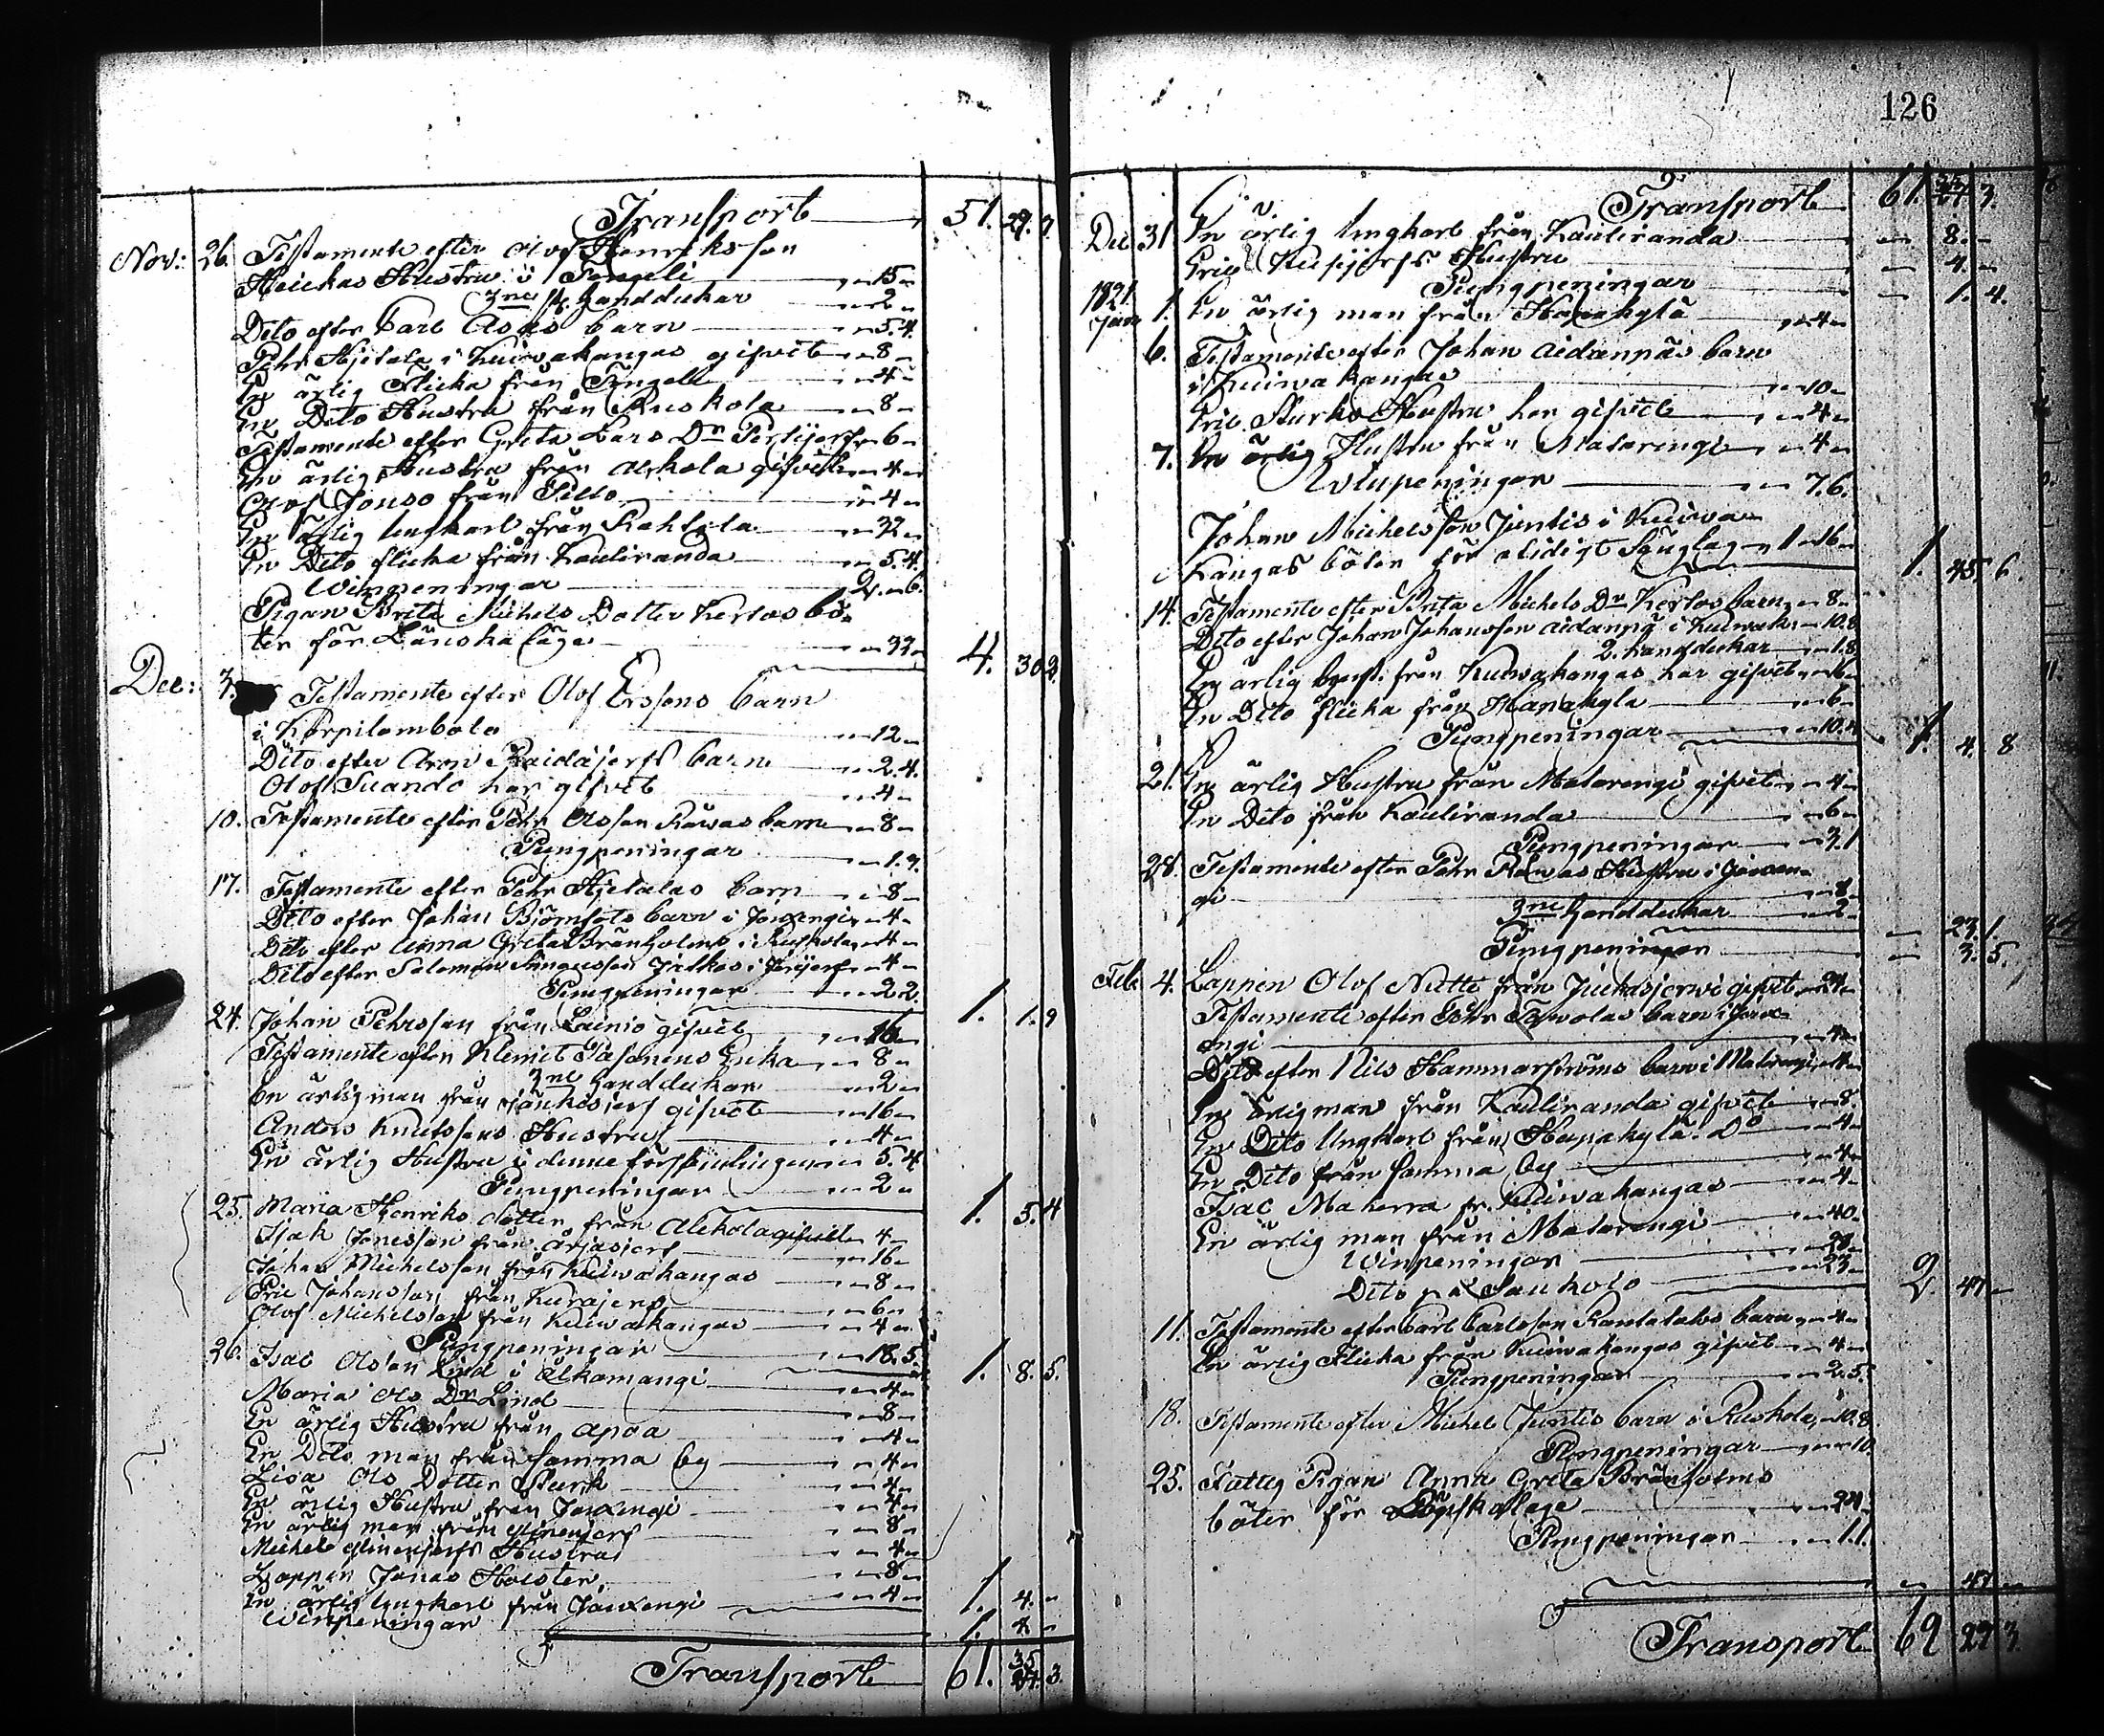 Transport 51. 27. 7.
Nov: 26. Testamente efter Olof Henriksson
Heickas Hustru i Pengeli 15
3ne st. handdukar 2
Dito efter Carl Asas barn 5.4.
Pehr Hjetala i Kuiwakangas gifvit 8
En ärlig Flicka från 4
En Dito Hustru från Ruskola 8
Testamente efter Greta Lars Dr 6
En ärlig Hustru från Alkola gifvit 4
Olof Jonso från Pello 4
En ärlig Ungkarl från 32
En Dito flicka från Kauliranda 5.4.
Winpeningar 2. 6.
Pigan Brita Michels Dotter Kertos bö-
ter för Länska läge 32 4. 30 2.
Dec: 3. Testamente efter Olof Erssons barn
i Korpilombolo 12
Dito efter Aron Raidajerfs barn 2.4.
Olof Suando har gifvit 4
10. Testamente efter Pehr Olsson Råwas barn 8
Pungpeningar 1.9.
17. Testamente efter Pehr Hjetalas barn 8
Dito efter Johan barn i Jouxengi 4
Dito efter Anna Greta Bränholms i Ruskola 4
Dito efter Salomon i 4
Pungpeningar 2.2. 1. 1. 9
24. Johan Pehrsson från Lainio gifvit 16
Testamente efter Klemet Enka 8
3ne handdukar 2
En ärlig man från gifvit 16
Anders Knutssons Hustru 4
En ärlig Hustru i denne församlingen 5.4
Pungpeningar 2 1. 5. 4
25. Maria Henriks dotter från Alkola gifvit 4
Isak Jonesson från 16
Johan Michelsson från Kuiwakangas 8
Eric Johansson från Kurajerf 6
Olof Michelsson från Kuiwakangas 4
Pungpeningar 18.5. 1. 8. 5.
26. Isac Olsson Lind i Alkamangi 4
Maria Ols Dr Lind 8
En ärlig Hustru från Apoa 4
En Dito man från samma by 4
Lisa Ols Dotter Sturk 4
En ärlig Hustru från Jouxengi 4
En ärlig man från 8
Michels Hustru 4
Lappen Jonas Holster 8
En ärlig Ungkarl från Jouxengi 4 1. 4.
Winpeningar 1. 4
Transport 61. 35 3.
126
Transport 61. 3.
Dec 31 En ärlig Ungkarl från Kauliranda 8.
Eric Hustru 4.
Pungpeningar 1. 4.
1821. Jan 1. En ärlig man från Hapakylä 4
6. Testamente efter Johan Aidanpäs barn
i Kuiwakangas 10
Eric Sturks Hustru har gifvit 4
7. En ärlig Hustru från Matarengi 4
Winpeningar 7.6.
Johan Michelsson Juntis i Kuiwa-
kangas böter för otidigt Sänglag 1. 16 1. 45. 6.
14. Testamente efter Brita Michels Dr Kertos barn 8
Dito efter Johan Johansson Aidanpä i Kuiwak: 10.8
2. handdukar 1.8
En ärlig från Kuiwakangas har gifvit 16
En Dito flicka från Hapakyla 6
Pungpeningar 10.4 1. 4. 8
21. En ärlig Hustru från Matarengi gifvit 4
En Dito från Kauliranda 6
Pungpeningar 3.1
28. Testamente efter Pehr Råwas Hustru i Jouxen-
gi 8
3ne handdukar 2 23. 1.
Pungpeningar 3. 5.
Feb. 4. Lappen Olof Nutte från Juckasjerwi gifvit 24
Testamente efter Pehr Tawolas barn i Joux-
engi 4
Dito efter Nils Hammarströms barn i Matarengi 4
En ärlig man från Kauliranda gifvit 8
En Dito Ungkarl från Hapakylä Do 4
En Dito från samma by 4
Isac Makerra fr. Kuiwakangas 4
En ärlig man från Matarengi 40
Winpeningar 28
Dito på Saukolo 23 2. 47
11. Testamente efter Carl Carlsson Rantatalos barn 4
En ärlig Flicka från Kuiwakangas gifvit 4
Pungpeningar 2.5.
18. Testamente efter Michel Juntis barn i Ruskola 10.8
Pungpeningar 10.
25. Fattig Pigan Anna Greta Bränholms
böter för Lönskaläge 24
Pungpeningar 1.1.
47
Transport 62 27 3.